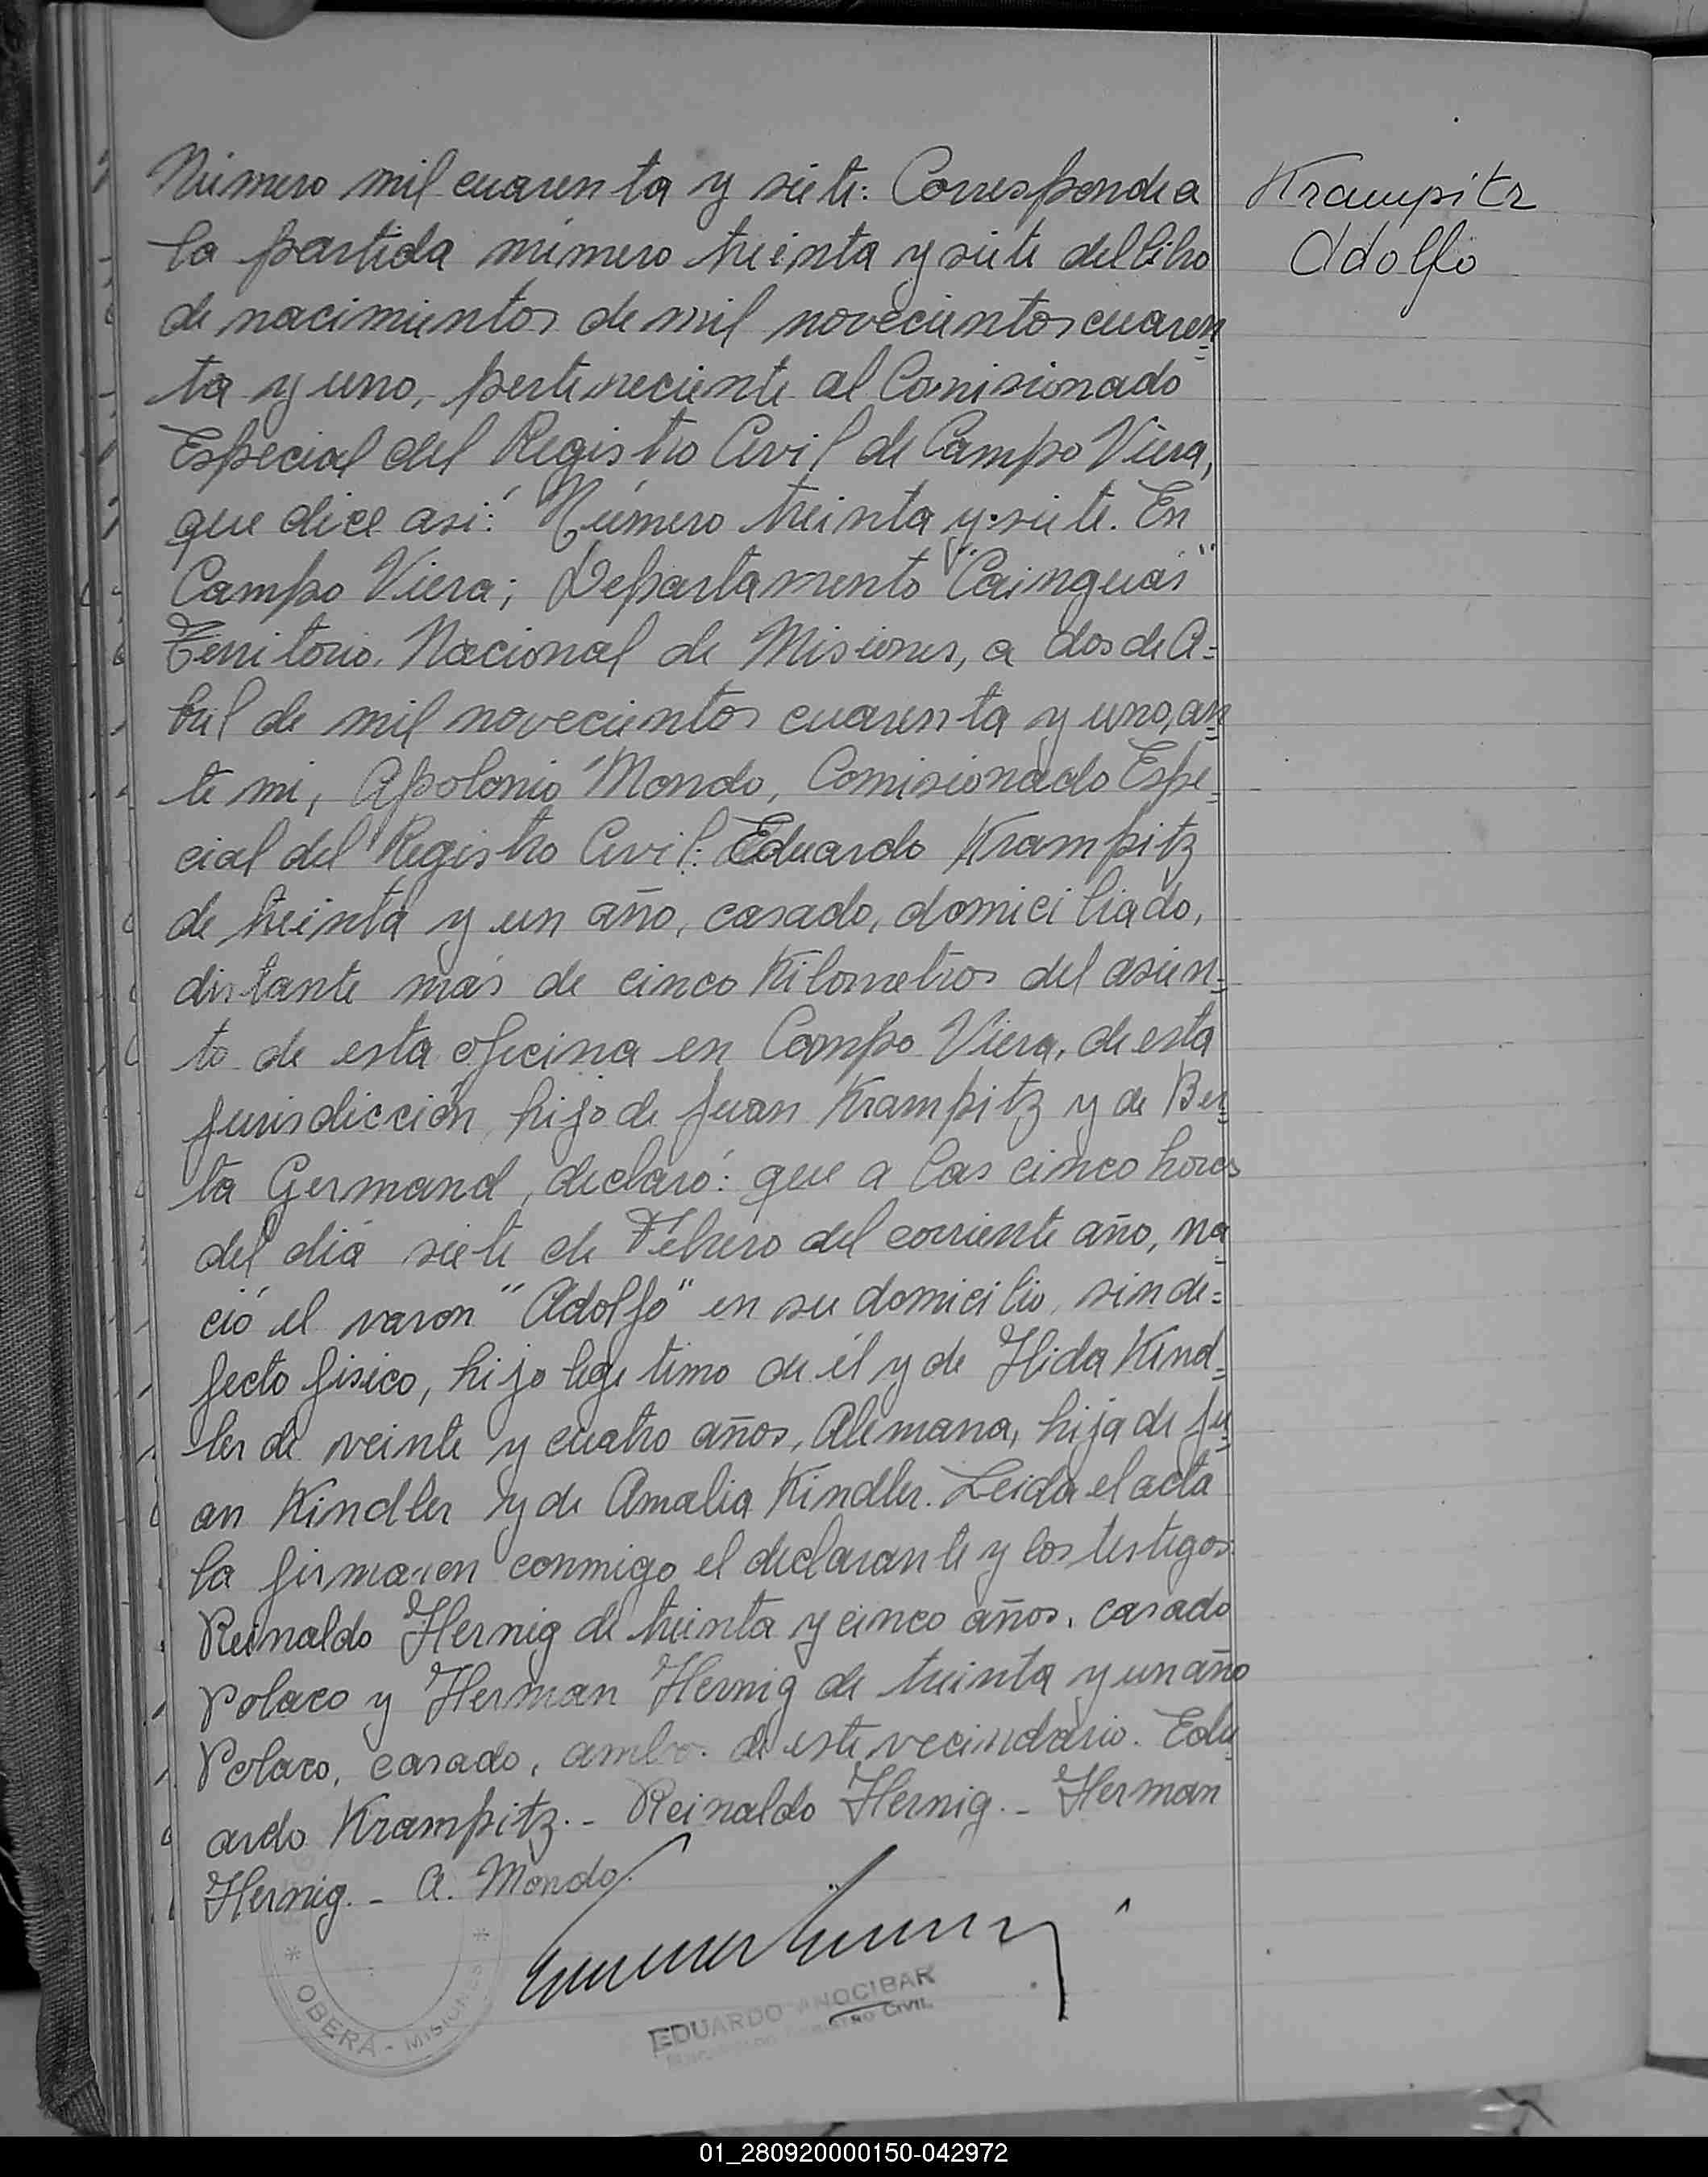 Número mil cuarenta y siete: Corresponde a
la partida número treinta y siete del libro
de nacimientos de mil novecientos cuaren=
ta y uno, perteneciente al Comisionado
Especial del Registro Civil de Campo Viera,
que dice así: Número treinta y siete. En
Campo Viera; Departamento "Cainguas"
Territorio Nacional de Misiones, a dos de A=
bril de mil novecientos cuarenta y uno, an=
te mi, Apolonio Mondo, Comisionado Espe=
cial del Registro Civil: Eduardo Krampitz
de treinta y un año, casado, domiciliado,
distante más de cinco Kilometros del asien=
to de esta oficina en Campo Viera, de esta
jurisdicción, hijo de Juan Krampitz y de Ber=
ta Germand, declaró: que a las cinco horas
del día siete de Febrero del corriente año, na=
ció el varon "Adolfo" en su domicilio, sin de=
fecto fisico, hijo legitimo de él y de Hida Kind=
ler de veinte y cuatro años, Alemana, hija de Ju=
an Kindler y de Amalia Kindler. Leida el acta
la firmaron conmigo el declarante y los testigos
Reinaldo Hernig de treinta y cinco años, casado
Polaco y Herman Hernig de treinta y un año
Polaco, casado, ambos de este vecindario. Edu=
ardo Krampitz.- Reinaldo Hernig.- Herman
Hernig.- A. Mondo.
Krampitz
Adolfo
* OBERÁ - MISIONES *
EDUARDO ANOCIBAR
REGISTRO CIVIL
01_280920000150-042972